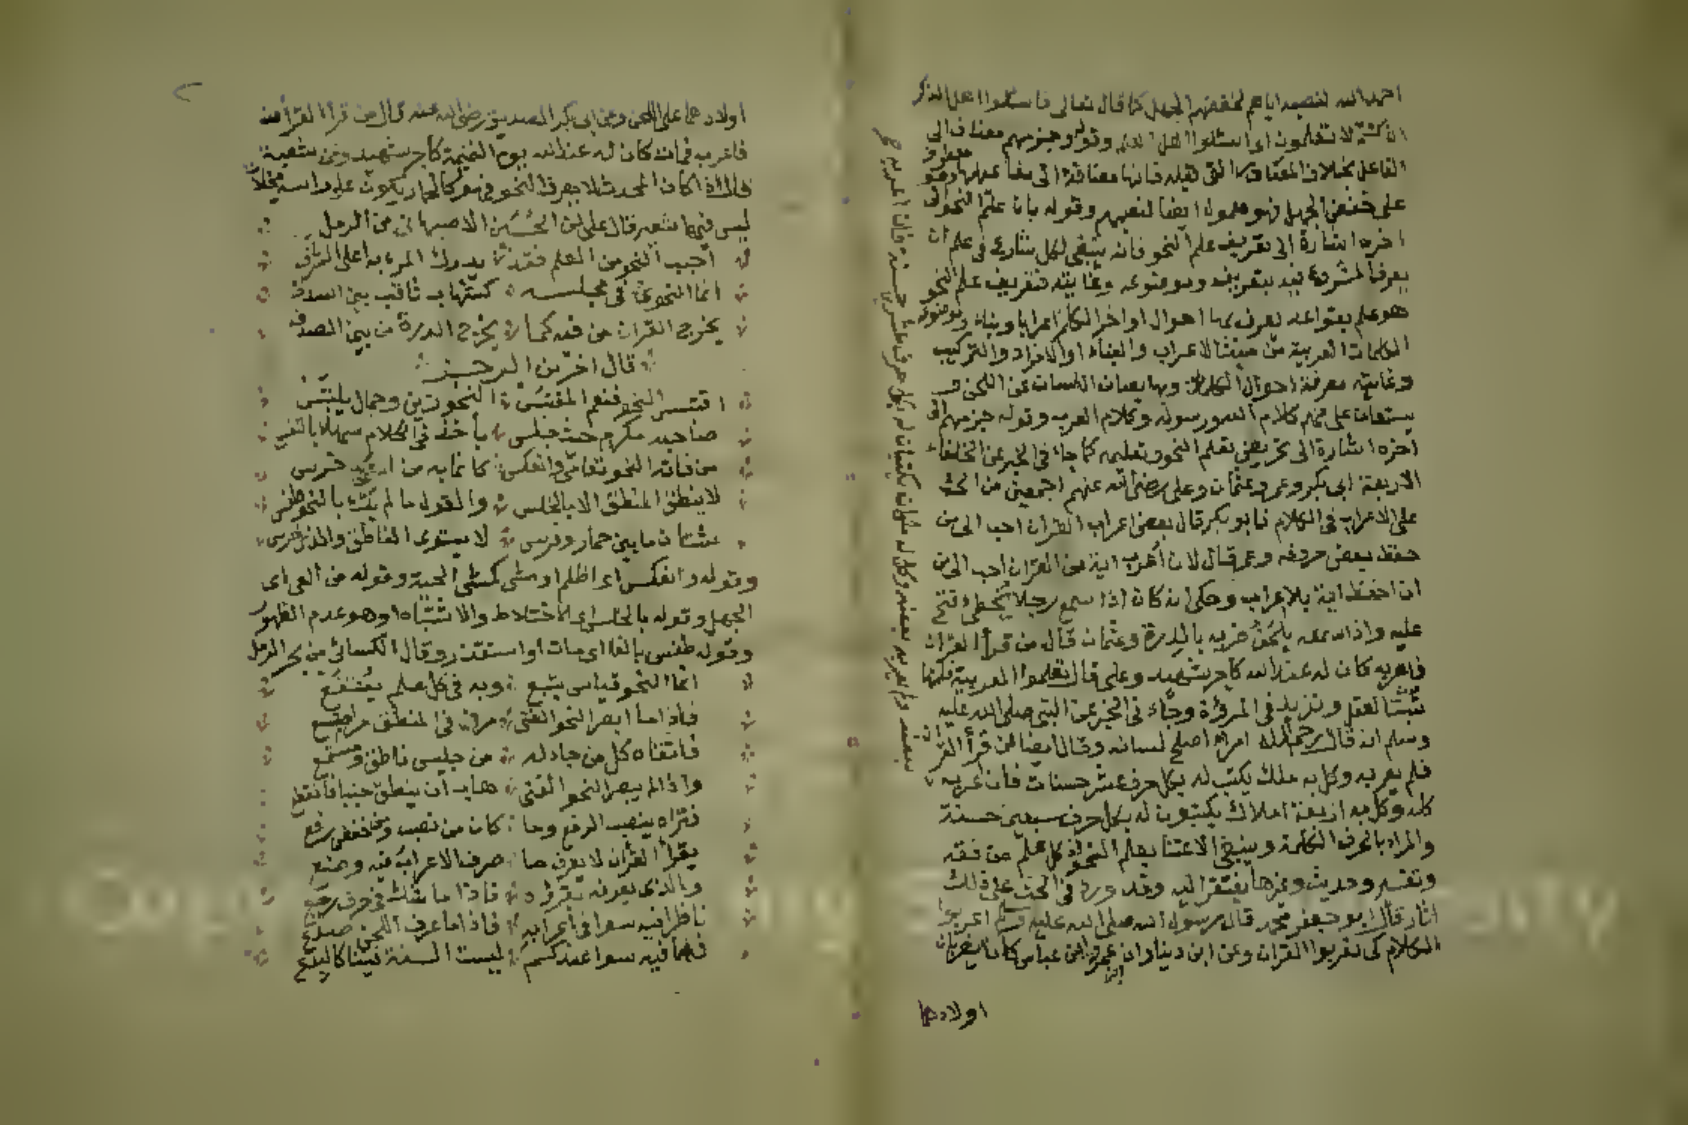 احمد الله لنصبه اياهم لخفضهم الجهل كما قال تعالى فاسئلوا اهل الذكر
ان كنتم لا تعلمون اى اسئلوا اهل العلم وقوله وجزمهم مضاف الى
الفاعل بخلاف المضاف التى قبله فانها مضافة الى مفاعيلها وهو معطوف
على خفض الجهل فهو معمول ايضا لنصبهم وقوله بان علم النحو الى
اخره اشارة الى تعريف علم النحو فانه ينبغى لكل شارع فى علم ان
يعرف المشروع فيه بتعريفه وموضوعه وغايته فتعريف علم النحو
هو علم بقواعد يعرف بها احوال اواخر الكلم اعرابا وبناء وموضوعه
الكلمات العربية من حيث الاعراب والبناء او الافراد والتركيب
وغايته معرفة احوال الكلام وبها يصان اللسان عن اللحن و
يستعان على فهم كلام الله ورسوله وكلام العرب وقوله جزمهم الى
اخره اشارة الى تحريض تعلم النحو وتعليمه كما جاء فى الخبر عن الخلفاء
الاربعة ابى بكر وعمر وعثمان وعلى رضى الله عنهم اجمعين من الحث
على الاعراب فى الكلام فابو بكر قال بعض اعراب القران احب الى من
حفظ بعض حروفه وعمر قال لان أعرب اية من القران احب الى من
ان احفظ اية بلا اعراب وحكى انه كان اذا سمع رجلا يخطئ فتح
عليه واذا سمعه يلحن ضربه بالدرة وعثمان قال من قرأ القران
فاعربه كان له عند الله كاجر شهيد وعلى قال تعلموا العربية فانها
تثبت العقل وتزيد فى المروءة وجاء فى الخبر عن النبى صلى الله عليه
وسلم انه قال رحم الله امرء اصلح لسانه وقال ايضا من قرأ القران
فلم يعربه وكل به ملك يكتب له بكل حرف عشر حسنات فان اعرب
كله وكل به اربعة املاك يكتبون له بكل حرف سبعين حسنة
والمراد بالحرف الكلمة وينبغى الاعتناء بعلم النحو اذ كل علم من فقه
وتفسير وحديث وغيرها يفتقر اليه وقد ورد فى الحث على ذلك
اثار قال ابو جعفر محمد قال رسول الله صلى الله عليه وسلم اعربوا
الكلام كى تعربوا القران وعن ابن دينار ان ابن عمر وابن عباس كانا يضربان
اولادهما
اولادهما على اللحن وعن ابى بكر الصديق رضى الله عنه قال من قرأ القرأن
فاعرب فمات كان له عند الله يوم القيمة كاجر شهيد وعن شعبة
قال اذا كان المحدث لا يعرف النحو فهو كالحمار يكون على راسه مخلاة
ليس فيها شعير قال على بن الحسين الاصبهانى من الرمل
احبب النحو من العلم فقد يدرك المرء به اعلى الشرف
انما النحوى فى مجلسه كشهاب ثاقب بين السدف
يخرج القران من فيه كما يخرج الدرة من بين الصدف
قال اخر من الرجز
اقتبس النحو فنعم المقتبس النحو زين وجمال يلتمس
صاحبه مكرم حيث جلس
من فاته النحو تعامى وانعكس كانما به من خرس
لا ينطق المنطق الا بالخلس والقول ما لم يك بالنحو طفس
شتان ما بين حمار وفرس لا يستوى الناطق والذى خرس
وقوله وانعكس اى اظلم او مشى كمشى الحية وقوله من العى اى
الجهل وقوله بالخلس اى الاختلاط والاشتباه او هو عدم الظهور
وقوله طفس بالفا اى مات او استقذر وقال الكسائى من بحر الرمل
انما النحو قياس يتبع وبه فى كل علم ينتفع
فاذا ما ابصر النحو الفتى مر فى المنطق مرا فاتسع
فاتقاه كل من جادله من جليس ناطق ومستمع
واذا لم يبصر النحو الفتى هاب ان ينطق جبنا فانقطع
فتراه ينصب الرفع وما كان من نصب ومن خفض رفع
يقرأ القرأن لا يعرف ما صرف الاعراب فيه وصنع
والذى يعرفه يقرؤه فاذا ما شك فى حرف رجع
ناظرا فيه وفى اعرابه فاذا ما عرف اللحن صدع
فهما فيه سواء عندكم ليست السنة فينا كالبدع